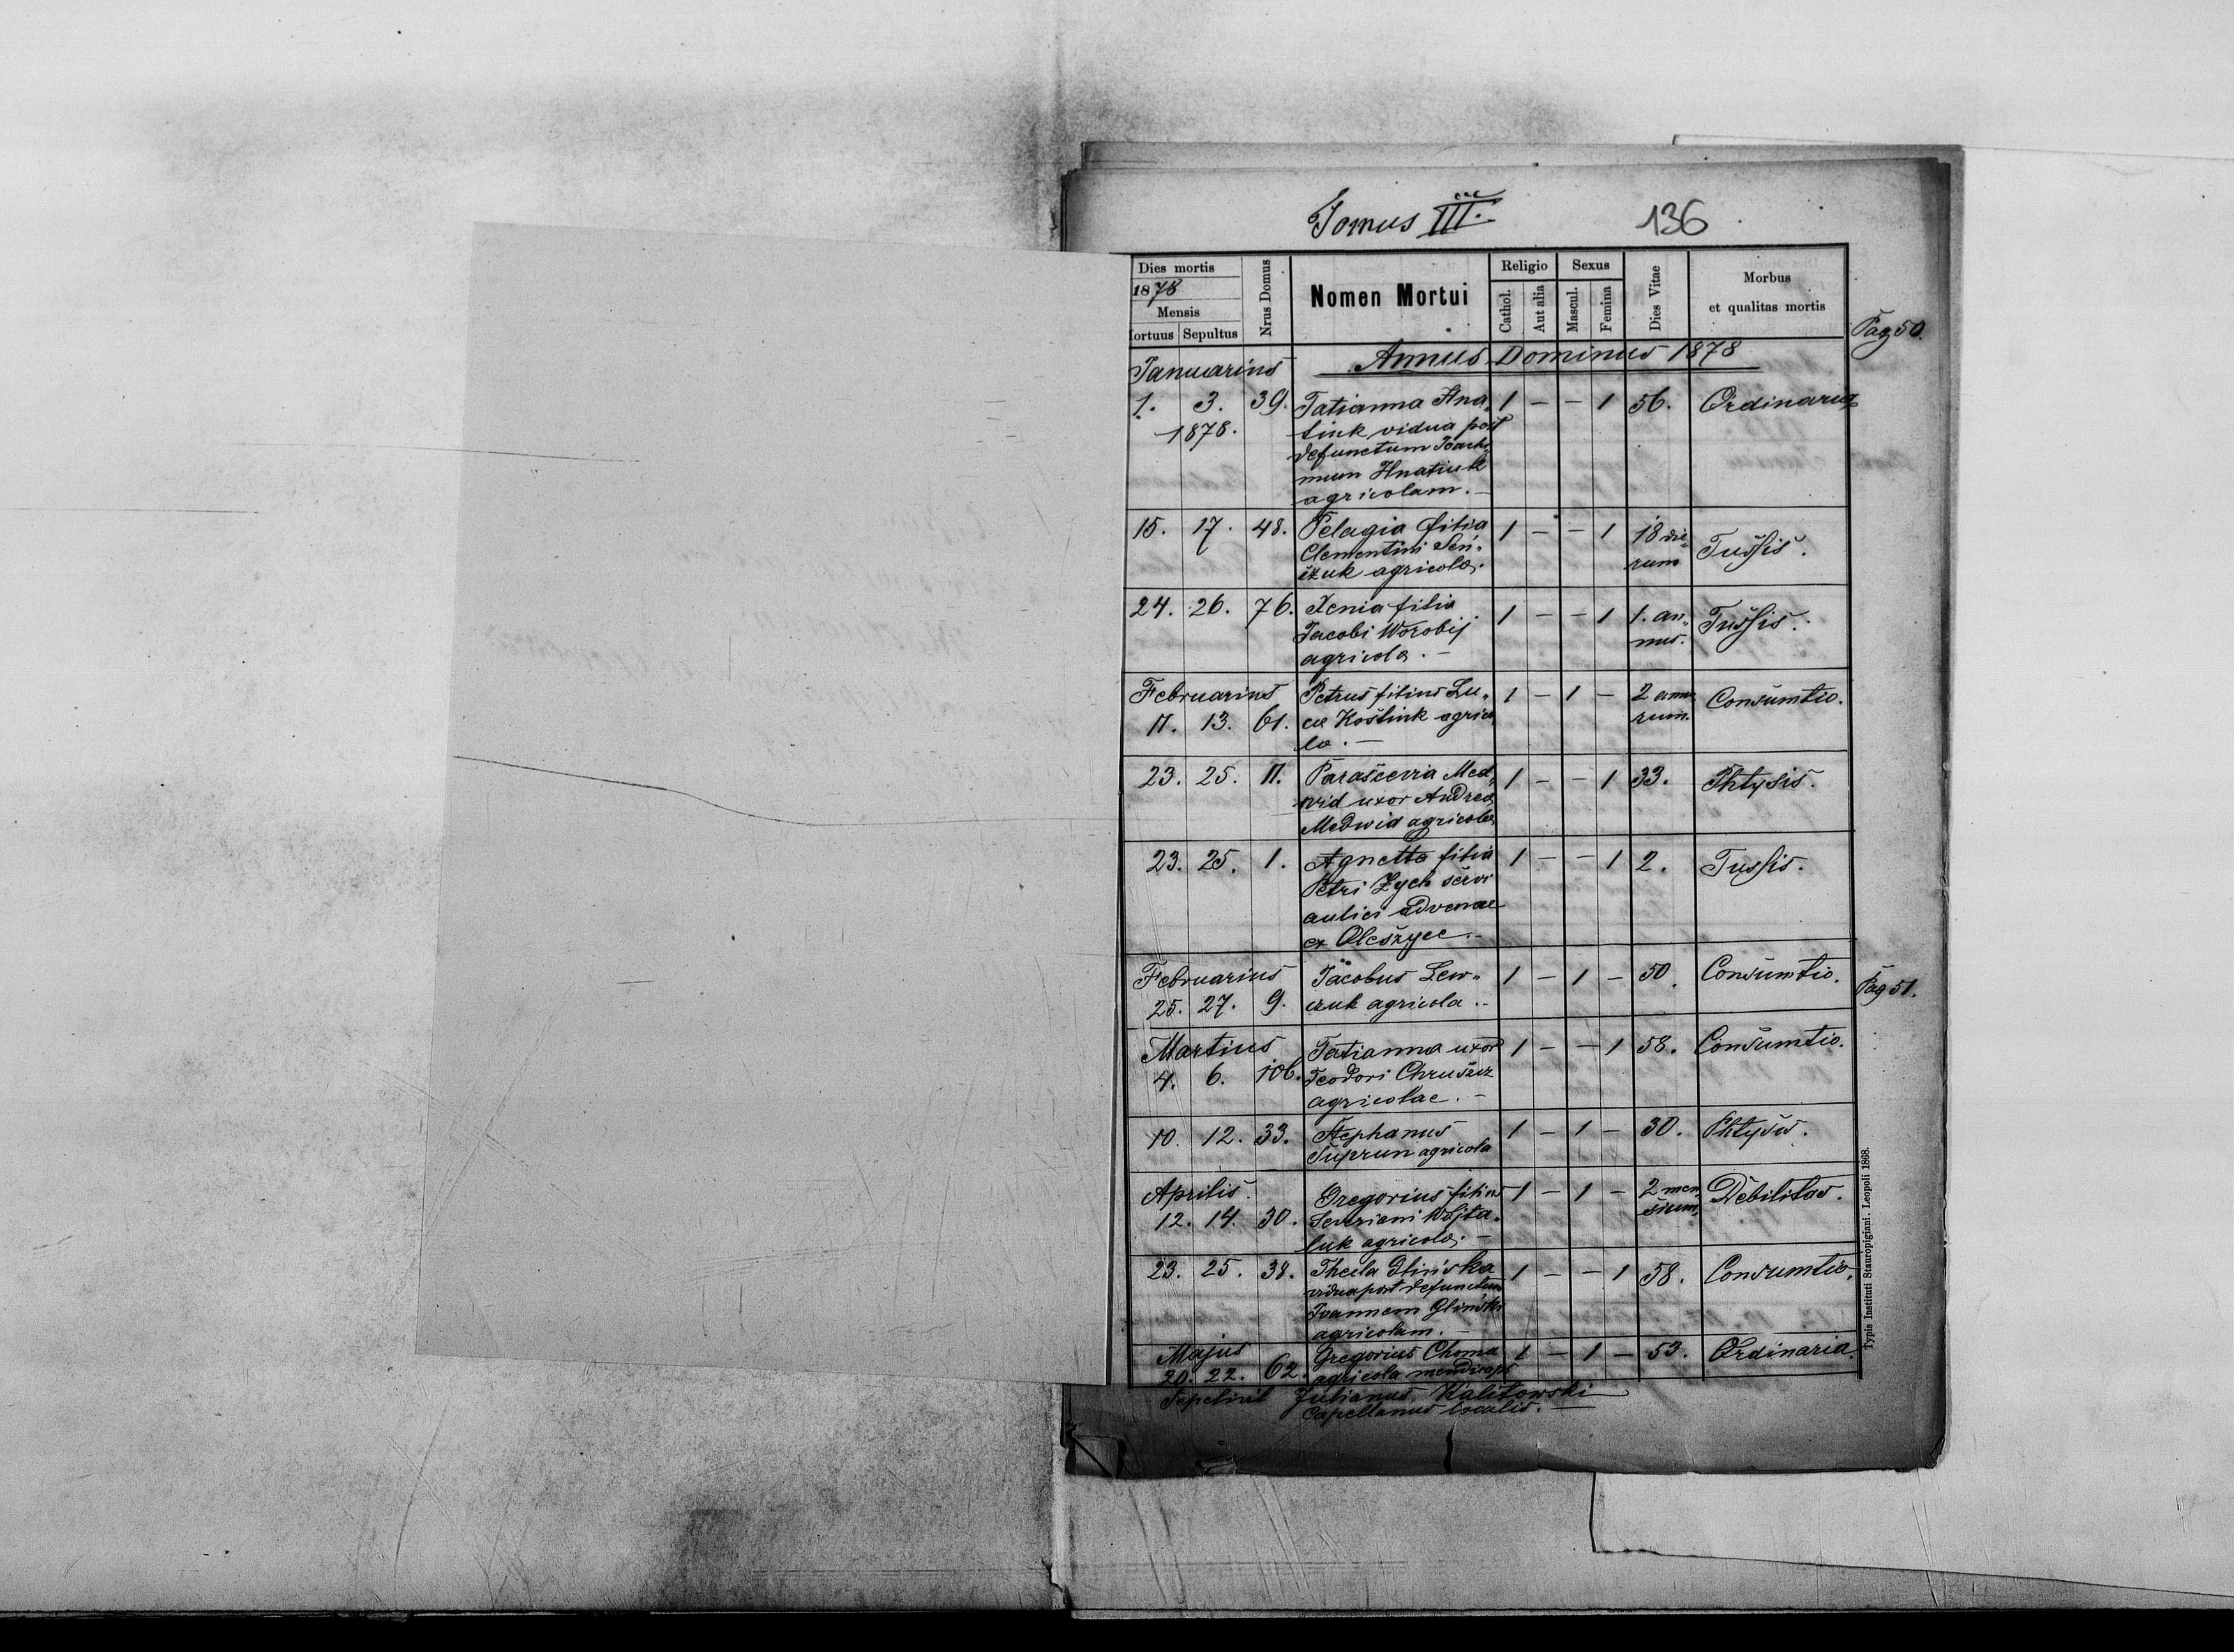 Tomus III. 136
Dies mortis
1878
Mensis
ortuus Sepultus
Nrus Domus
Nomen Mortui
Religio
Cathol.
Aut alia
Sexus
Mascul.
Femina
Dies Vitae
Morbus
et qualitas mortis
Pag 50.
Januarius Annus Dominus 1878
1. 3. 39. Tatianna Hna„ 1 – – 1 56. Ordinaria
1878. tiuk vidua post
defunctum Joachi
mum Hnatiuk
agricolam. –
15. 17. 48. Pelagia filia 1 – – 1 18 die„ Tussis.
Clementini Sen„ rum
czuk agricola.
24. 26. 76. Xenia filia 1 – – 1 1. an„ Tussis.
Jacobi Worobij nus.
agricola. –
Februarius Petrus filius Lu„ 1 – 1 – 2 anno Consumtio.
11. 13. 61. cæ Kostiuk agrico rum.
la. –
23. 25. 11. Parascevia Med„ 1 – – 1 33. Phtysis.
wid uxor Andrea
Medwid agricola
23. 25. 1. Agnetta filia 1 – – 1 2. Tussis.
Petri Zych servi
aulici advenae
ex Oleszyce. –
Februarius Jacobus Lew„ 1 – 1 – 50. Consumtio.
25. 27. 9. czuk agricola. –
Pag 51.
Martius Tatianna uxor 1 – – 1 58. Consumtio.
4. 6. 106. Teodori Chruszcz
agricolae. –
10. 12. 33. Stephanus 1 – 1 – 30. Phtysis.
Suprun agricola
Aprilis. Gregorius filius 1 – 1 – 2 men„ Debilitas.
12. 14. 30. Severiani Wojta„ sium.
luk agricola. –
23. 25. 38. Thecla Glińska 1 – – 1 58. Consumtio.
vidua post defunctum
Joannem Gliński
agricolam. –
Majus Gregorius Choma 1 – 1 – 53. Ordinaria.
20. 22. 62. agricola mendicaps
Sepelivit Julianus Kalitowski
Capellanus localis. –
Typis Instituti Stauropigiani. Leopoli 1868.